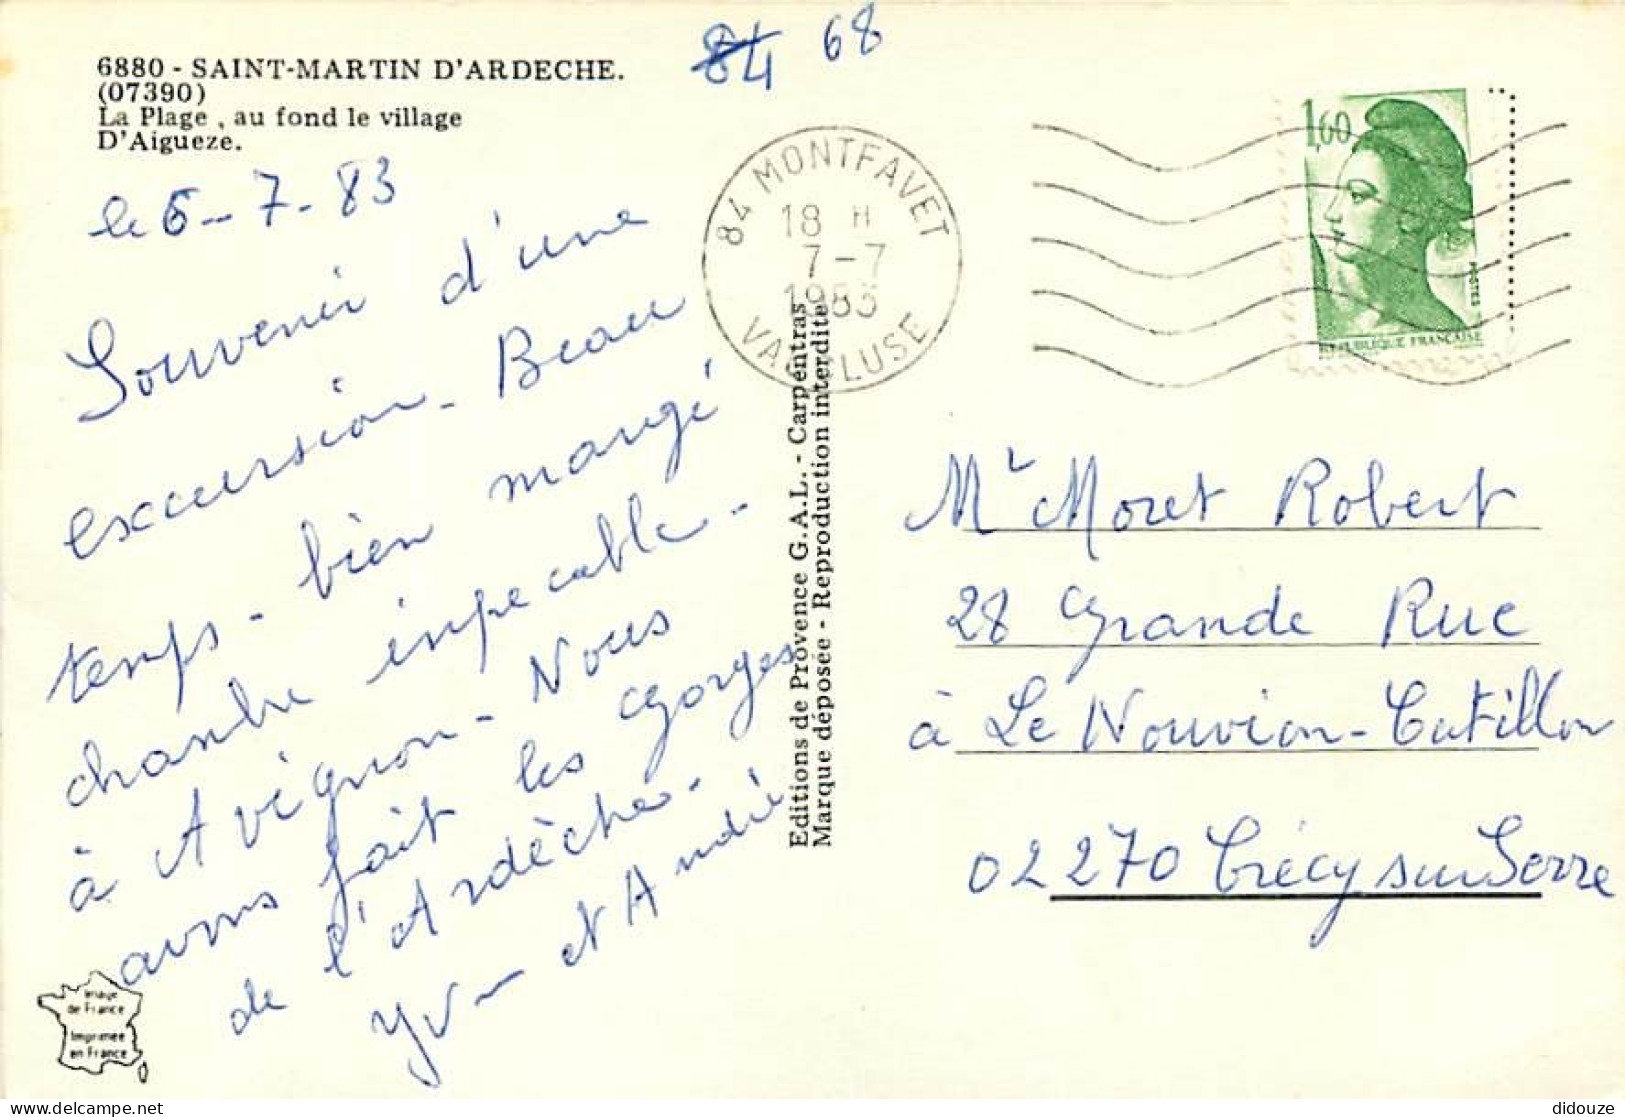 84 68
6880 - SAINT-MARTIN D'ARDECHE.
(07390)
La Plage , au fond le village
D'Aigueze.
le 6-7-83
Souvenir d'une
excursion - Beau
temps - bien mangé
chambre impecable -
à Avignon - Nous
avons fait les Gorges
de l'Ardèche.
et André
Image
de France
Imprimée
en France
Editions de Provence G.A.L. - Carpentras
Marque déposée - Reproduction interdite
84 MONTFAVET
18 H
7-7
1983
VAUCLUSE
1,60
POSTES
REPUBLIQUE FRANÇAISE
Mr Moret Robert
28 Grande Rue
à Le Nouvion-Catillon
02270 Crécy sur Serre
didouze
delcampe.net